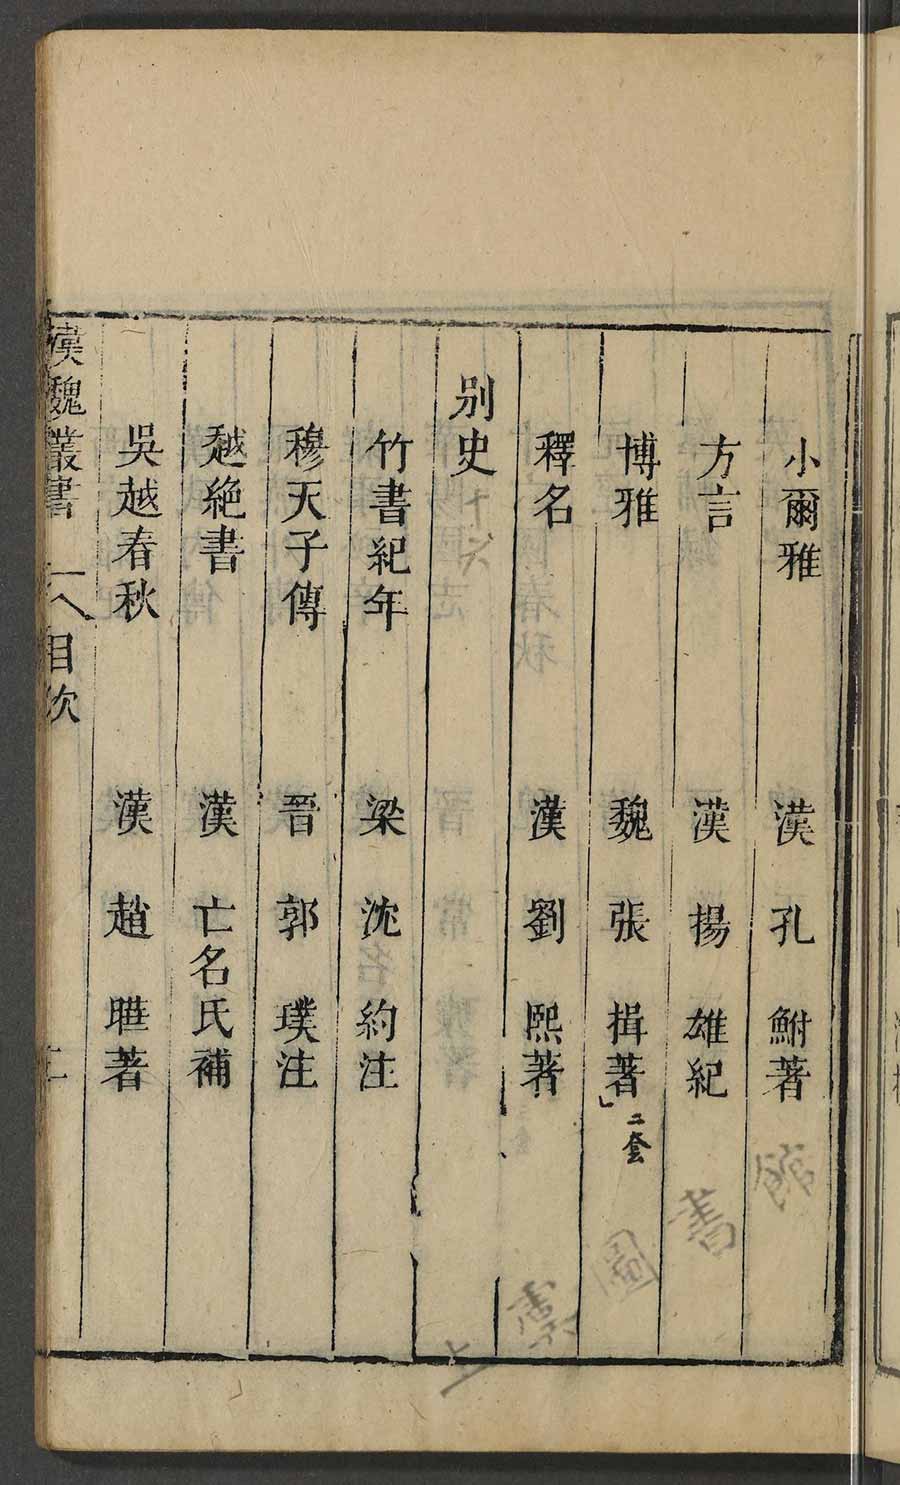 小爾雅 漢 孔 鮒著
方言 漢 揚 雄紀
博雅 魏 張 揖著 二套
釋名 漢 劉 熙著
别史 十六
竹書紀年 梁 沈 約注
穆天子傳 晉 郭 璞注
越絶書 漢 亡名氏補
吳越春秋 漢 趙 曄著
漢魏叢書 目次 二